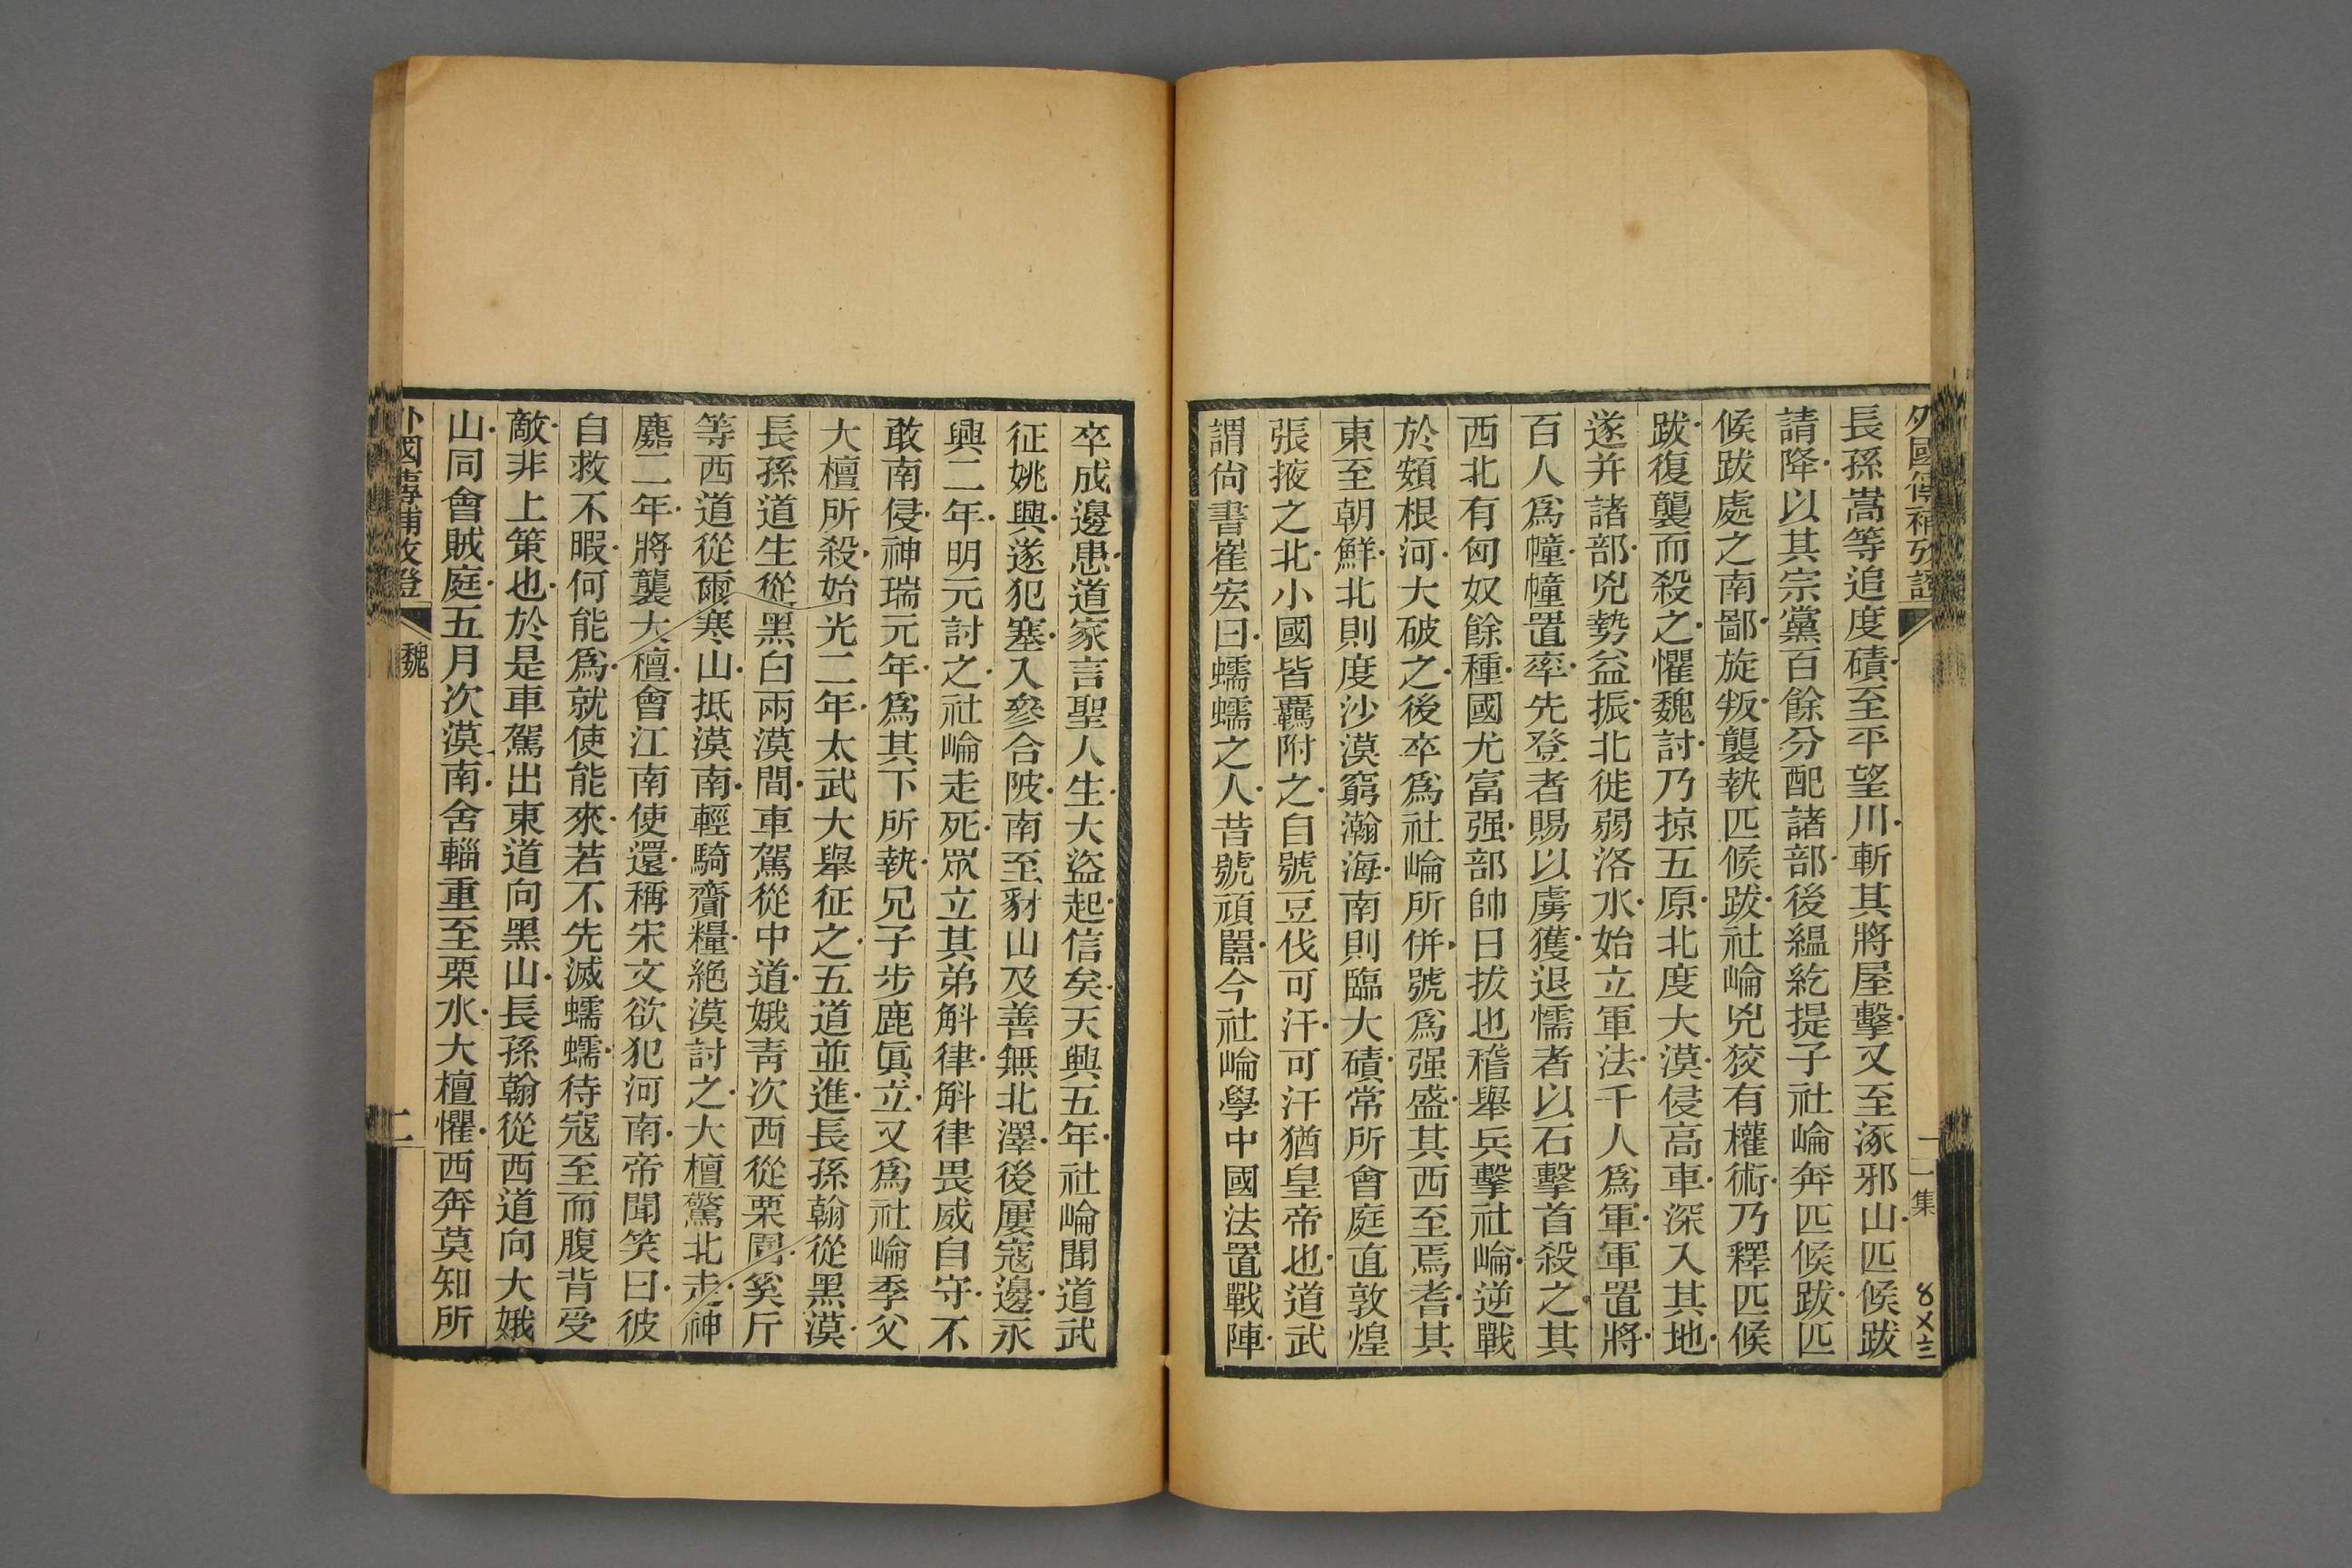 長孫嵩等追度磧至平望川斬其將屋擊又至涿邪山匹候跋
請降以其宗黨百餘分配諸部後緼紇提子社崘奔匹候跋匹
候跋處之南鄙旋叛襲執匹候跋社崘兇狡有權術乃釋匹候
跋復襲而殺之懼魏討乃掠五原北度大漠侵高車深入其地
遂并諸部兇勢益振北徙弱洛水始立軍法千人爲軍軍置將
百人爲幢幢置率先登者賜以虜獲退懦者以石擊首殺之其
西北有匈奴餘種國尤富强部帥日拔也稽舉兵擊社崘逆戰
於頞根河大破之後卒爲社崘所併號爲强盛其西至焉耆其
東至朝鮮北則度沙漠窮瀚海南則臨大磧常所會庭直敦煌
張掖之北小國皆羈附之自號豆伐可汗可汗猶皇帝也道武
謂尙書崔宏曰蠕蠕之人昔號頑嚚今社崘學中國法置戰陣
卒成邊患道家言聖人生大盜起信矣天興五年社崘聞道武
征姚興遂犯塞入參合陂南至豺山及善無北澤後屢寇邊永
興二年明元討之社崘走死眾立其弟斛律斛律畏威自守不
敢南侵神瑞元年爲其下所執兄子步鹿眞立又爲社崘季父
大檀所殺始光二年太武大舉征之五道並進長孫翰從黑漠
長孫道生從黑白兩漠間車駕從中道娥靑次西從栗園奚斤
等西道從爾寒山抵漠南輕騎齎糧絕漠討之大檀驚北走神
䴥二年將襲大檀會江南使還稱宋文欲犯河南帝聞笑曰彼
自救不暇何能爲就使能來若不先滅蠕蠕待寇至而腹背受
敵非上策也於是車駕出東道向黑山長孫翰從西道向大娥
山同會賊庭五月次漠南舍輜重至栗水大檀懼西奔莫知所
外國傳補攷證
魏
二
集